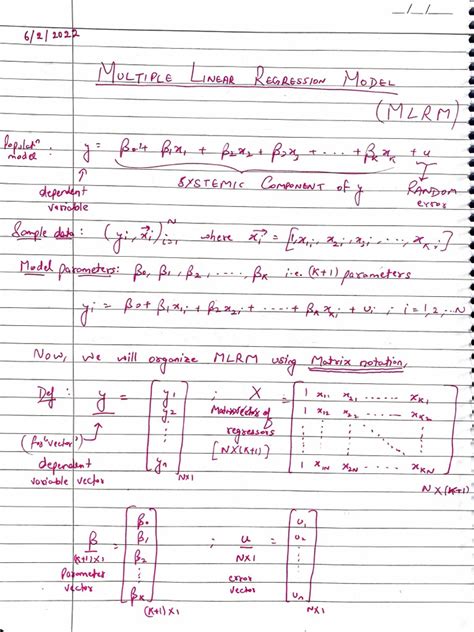 _/_/_
6/2/2022
MULTIPLE LINEAR REGRESSION MODEL
(MLRM)
Populatn model : y = β0 + β1x1 + β2x2 + β3x3 + .... + βKxK + u
dependent variable
SYSTEMIC COMPONENT of y
RANDOM error
Sample data : (yi, x⃗i)ᴺi=1 where x⃗i = [1, x1i, x2i, x3i, ..., xKi]
Model parameters: β0, β1, β2, ...., βK i.e. (K+1) parameters
yi = β0 + β1x1i + β2x2i + ..... + βKxKi + ui ; i = 1, 2, ..N
Now, we will organize MLRM using Matrix notation,
Def : y = [y1 y2 ⋮ yn] N×1 ; X = [1 x11 x21 ...... xK1
1 x12 x22 ...... xK2
1 x1N x2N ..... xKN] N×(K+1)
(for 'vector')
dependent variable vector
regressors
[N×(K+1)]
β = [β0 β1 β2 ⋮ βK] (K+1)×1 ; u = [u1 u2 ⋮ un] N×1
(K+1)×1
Parameter vector
N×1
error vector